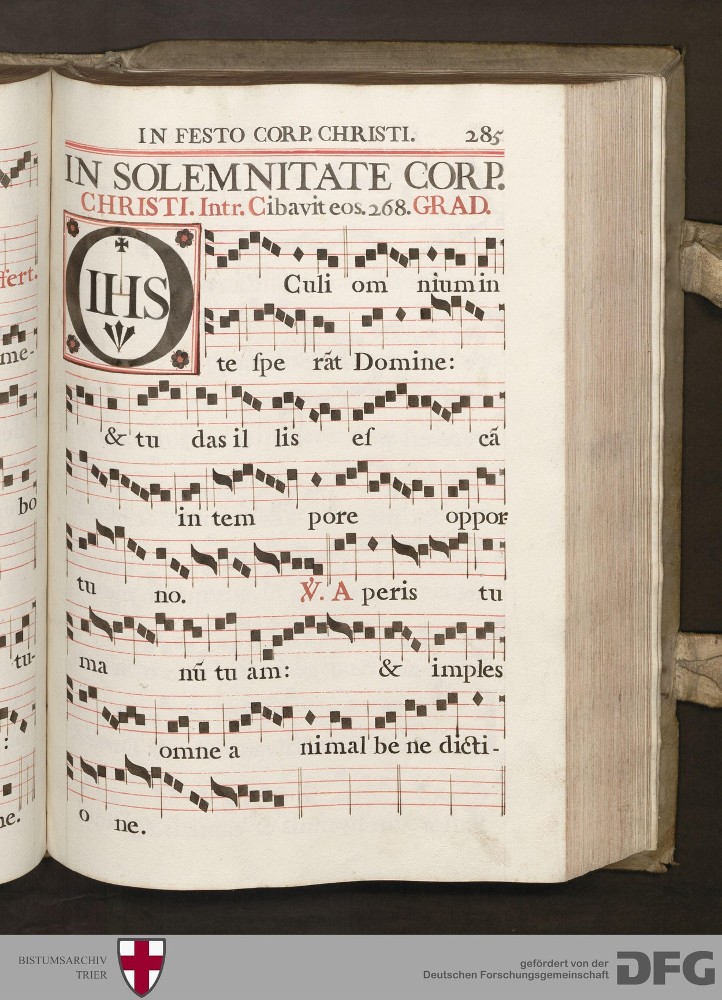 IN FESTO CORP. CHRISTI. 285
IN SOLEMNITATE CORP.
CHRISTI. Intr. Cibavit eos. 268. GRAD.
IHS
Culi om nium in
te ſpe rãt Domine:
& tu das il lis eſ cã
in tem pore oppor-
tu no. ℣. A peris tu
ma nũ tu am: & imples
omne a nimal be ne dicti-
o ne.
ffert.
me-
bo
tu-
:
ne.
BISTUMSARCHIV
TRIER
gefördert von der
Deutschen Forschungsgemeinschaft
DFG